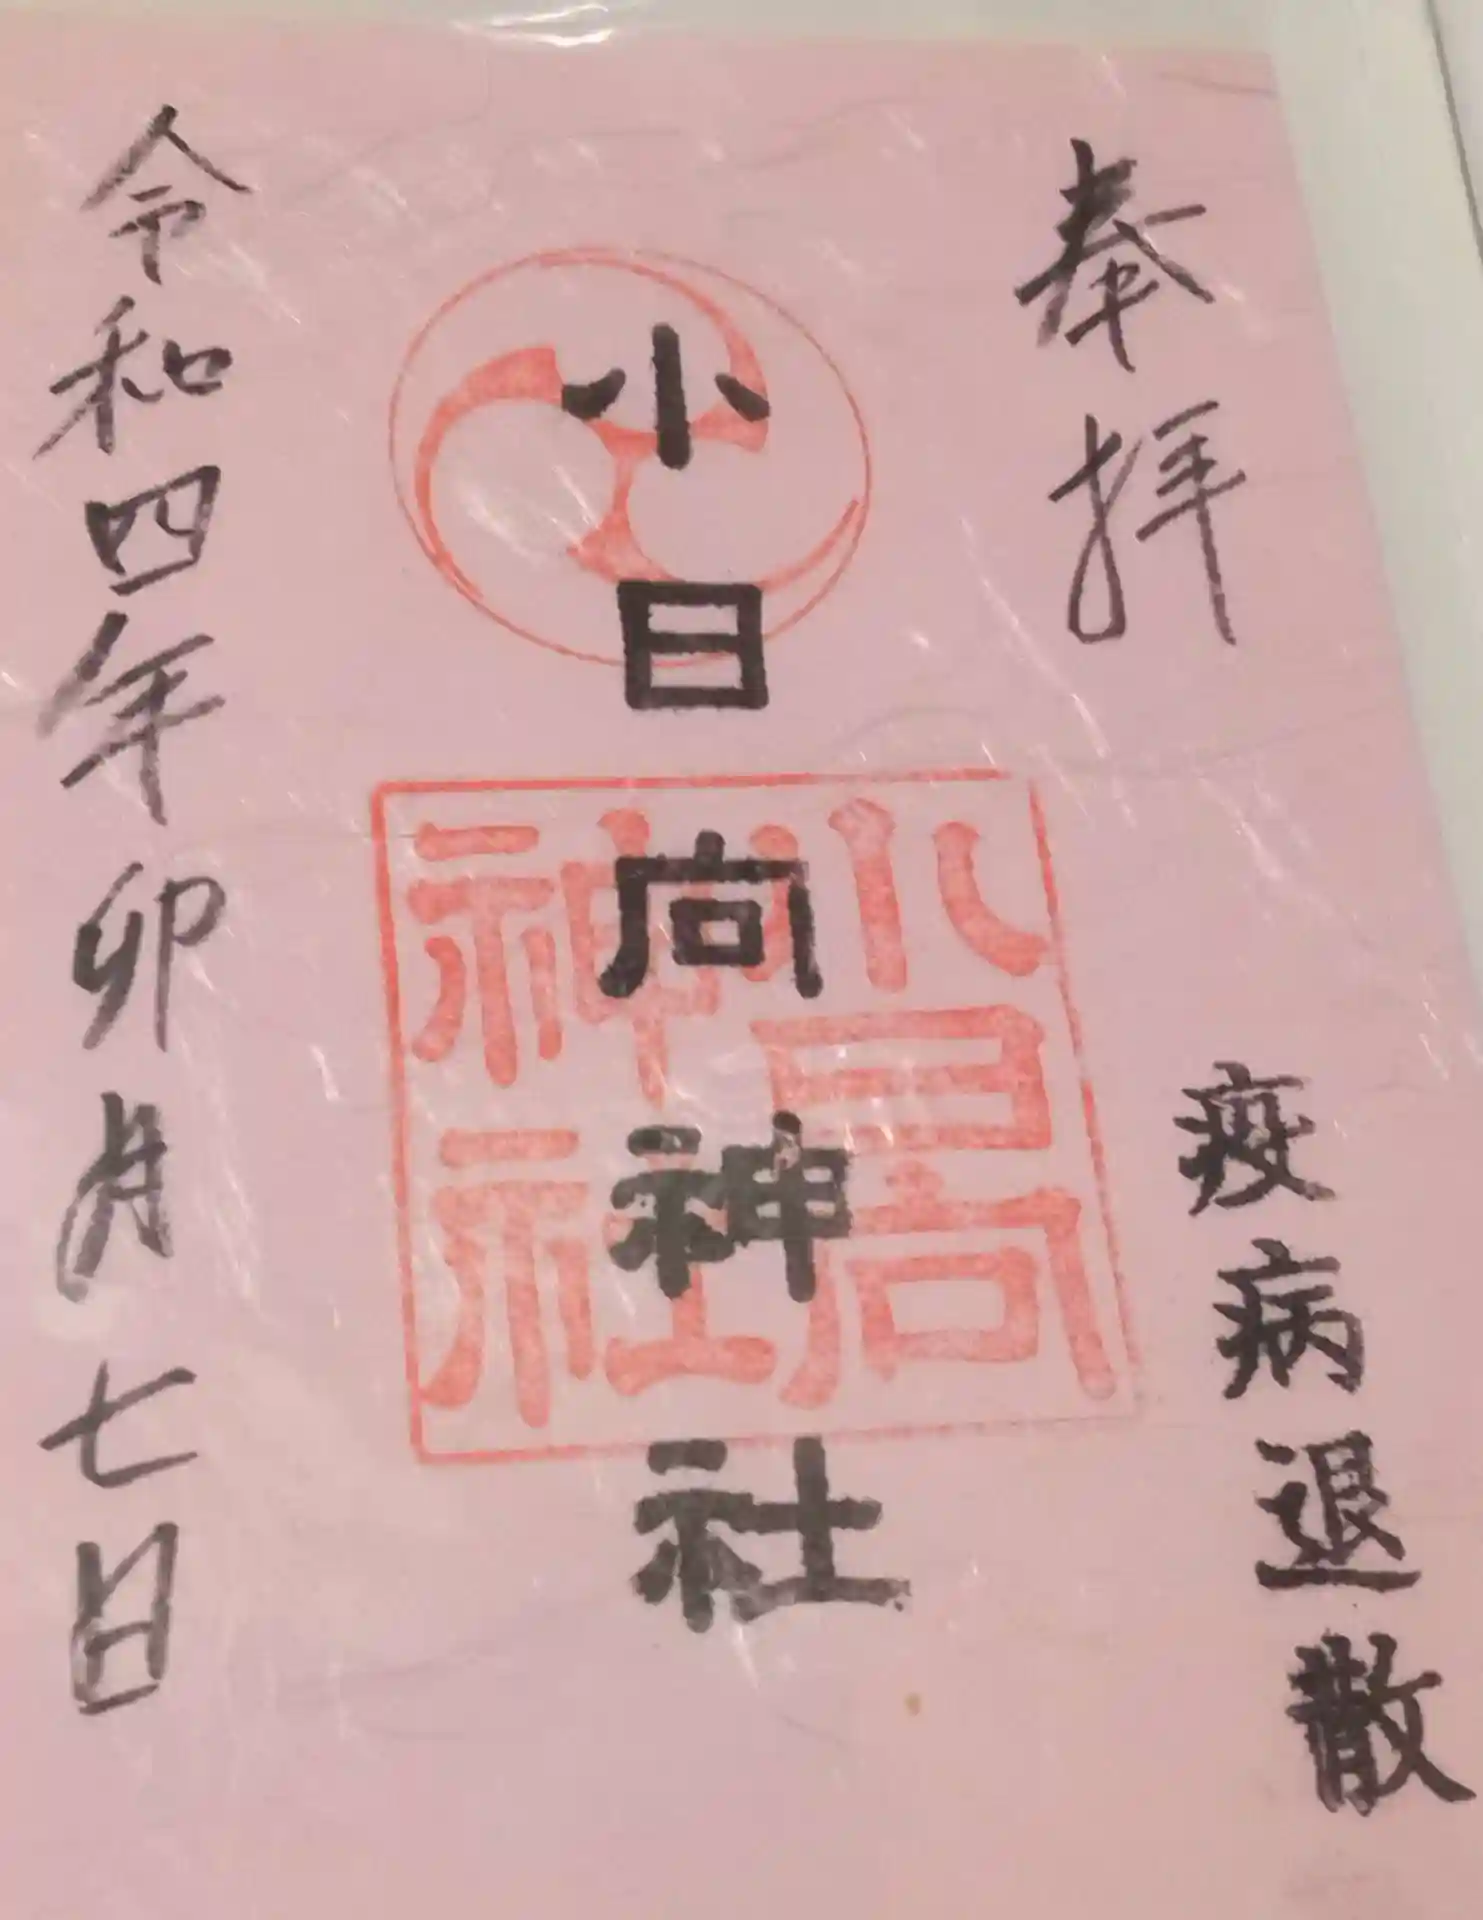 奉拝
疫病退散
小日向神社
小日向
神社
令和四年卯月七日